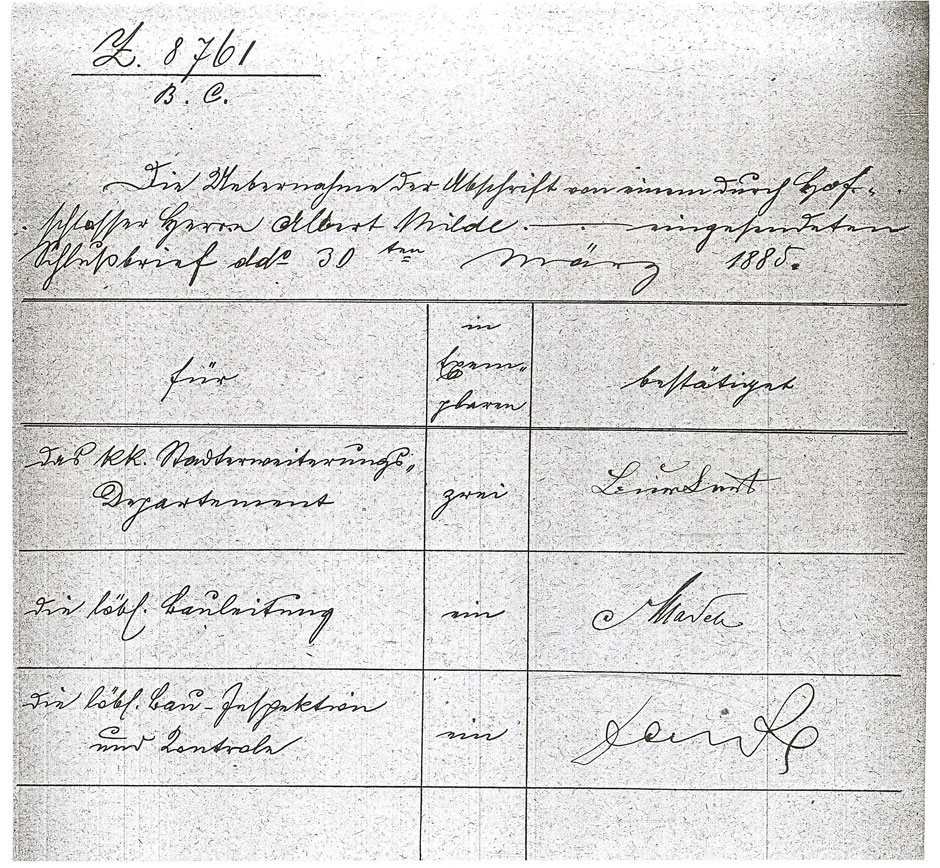 Z. 8761
B. C.
Die Uebernahme der Abschrift von einem durch Hof-
schlosser Herrn Albert Milde eingesendeten
Schlußbrief ddo 30ten März 1885.
für
in
Exem-
plaren
bestätiget
das kk. Stadterweiterungs-
Departement
zwei
die löbl. Bauleitung
ein
die löbl. Bau-Inspektion
und Kontrole
ein